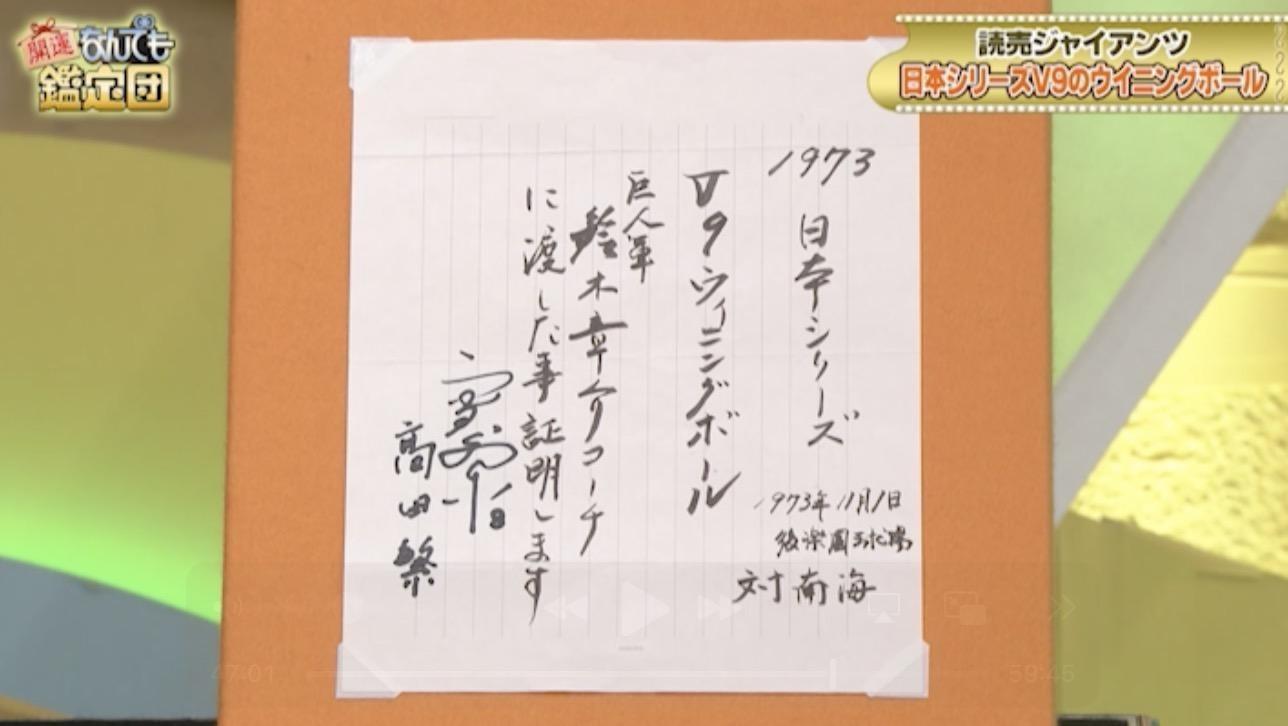 開運
なんでも
鑑定団
読売ジャイアンツ
日本シリーズV9のウイニングボール
1973
日本シリーズ
1973年11月1日
後楽園球場
対南海
V9ウィニングボール
巨人軍
鈴木章介コーチ
に渡した事証明します
高田繁
47:01
59:45